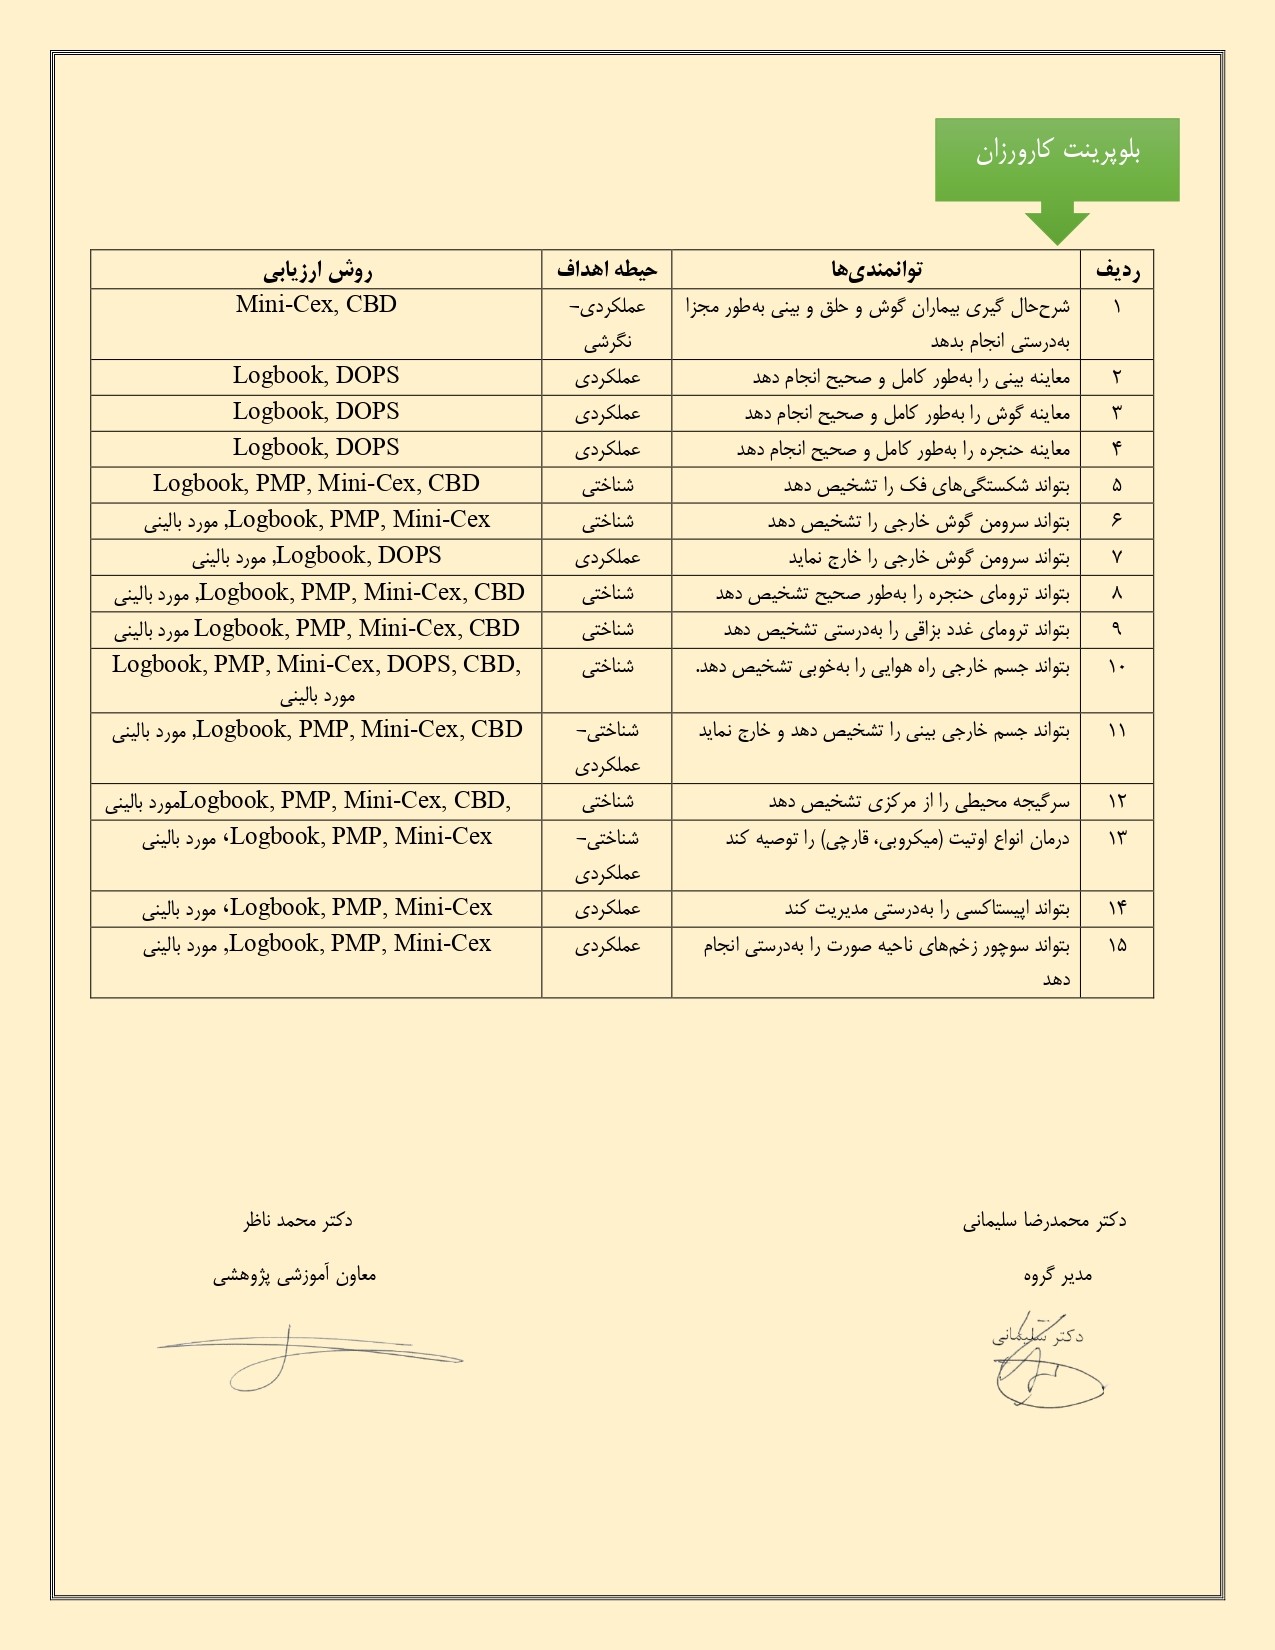 بلوپرینت کارورزان
ردیف توانمندی‌ها حیطه اهداف روش ارزیابی
۱ شرح‌حال گیری بیماران گوش و حلق و بینی به‌طور مجزا عملکردی– Mini-Cex, CBD
به‌درستی انجام بدهد نگرشی
۲ معاینه بینی را به‌طور کامل و صحیح انجام دهد عملکردی Logbook, DOPS
۳ معاینه گوش را به‌طور کامل و صحیح انجام دهد عملکردی Logbook, DOPS
۴ معاینه حنجره را به‌طور کامل و صحیح انجام دهد عملکردی Logbook, DOPS
۵ بتواند شکستگی‌های فک را تشخیص دهد شناختی Logbook, PMP, Mini-Cex, CBD
۶ بتواند سرومن گوش خارجی را تشخیص دهد شناختی Logbook, PMP, Mini-Cex, مورد بالینی
۷ بتواند سرومن گوش خارجی را خارج نماید عملکردی Logbook, DOPS, مورد بالینی
۸ بتواند ترومای حنجره را به‌طور صحیح تشخیص دهد شناختی Logbook, PMP, Mini-Cex, CBD, مورد بالینی
۹ بتواند ترومای غدد بزاقی را به‌درستی تشخیص دهد شناختی Logbook, PMP, Mini-Cex, CBD مورد بالینی
۱۰ بتواند جسم خارجی راه هوایی را به‌خوبی تشخیص دهد. شناختی Logbook, PMP, Mini-Cex, DOPS, CBD,
مورد بالینی
۱۱ بتواند جسم خارجی بینی را تشخیص دهد و خارج نماید شناختی– Logbook, PMP, Mini-Cex, CBD, مورد بالینی
عملکردی
۱۲ سرگیجه محیطی را از مرکزی تشخیص دهد شناختی Logbook, PMP, Mini-Cex, CBD, مورد بالینی
۱۳ درمان انواع اوتیت (میکروبی، قارچی) را توصیه کند شناختی– Logbook, PMP, Mini-Cex، مورد بالینی
عملکردی
۱۴ بتواند اپیستاکسی را به‌درستی مدیریت کند عملکردی Logbook, PMP, Mini-Cex، مورد بالینی
۱۵ بتواند سوچور زخم‌های ناحیه صورت را به‌درستی انجام عملکردی Logbook, PMP, Mini-Cex, مورد بالینی
دهد
دکتر محمدرضا سلیمانی دکتر محمد ناظر
مدیر گروه معاون آموزشی پژوهشی
دکتر سلیمانی